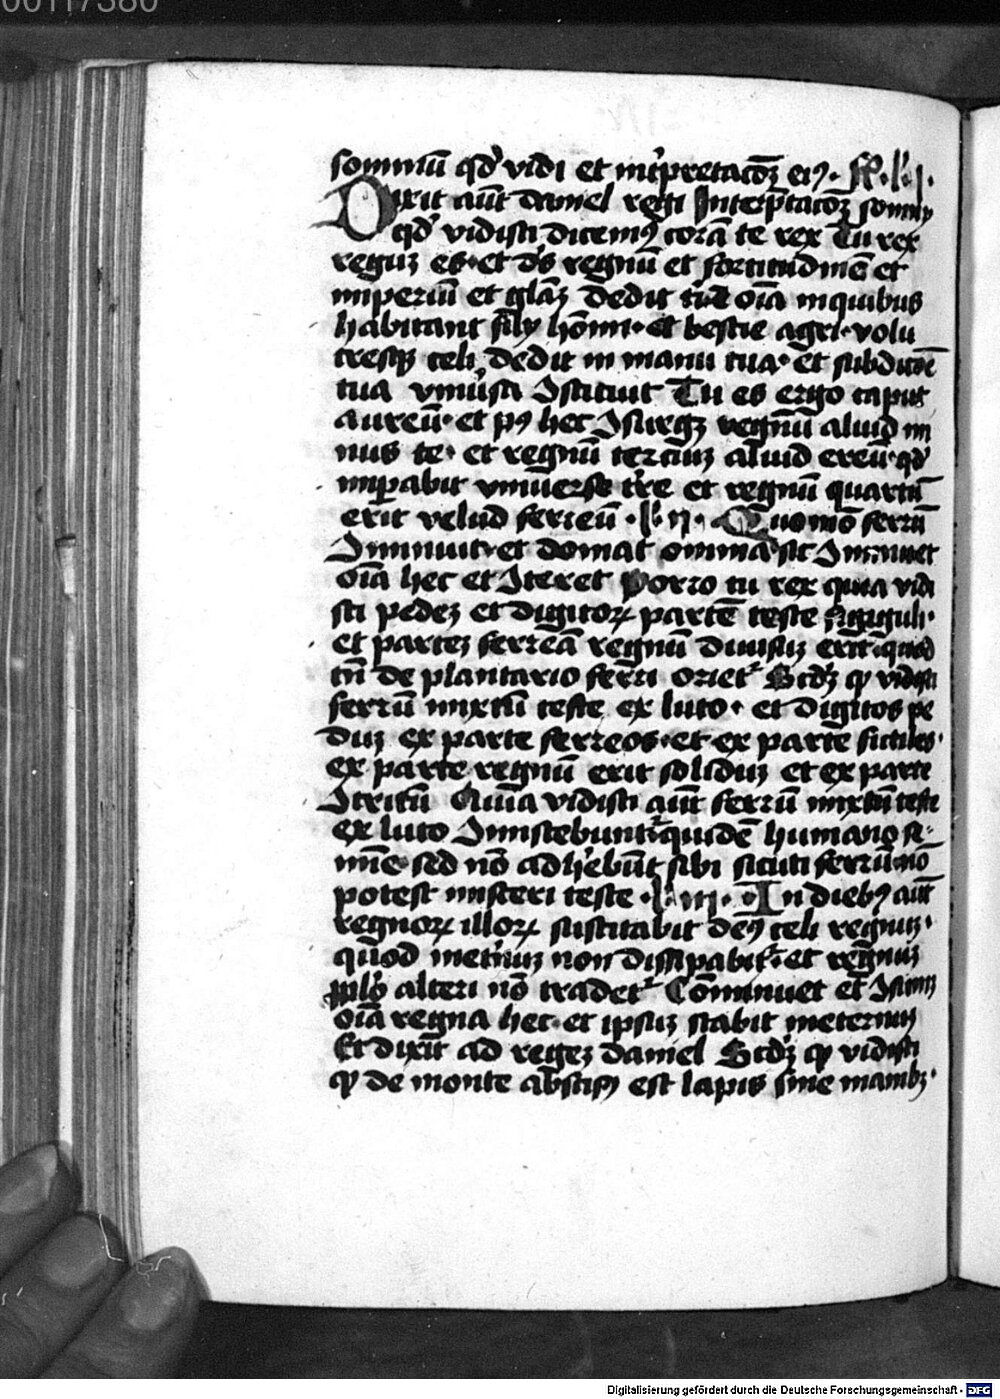 00117380
somniū qd̛ vidi et int̛pretacōȝ eiꝯ. ffᷓ. l̛. j.
Dixit aūt daniel regi Interp̄tacōȝ somny
qd̛ vidisti dicemꝯ corā te rex Tu rex
regūȝ es · et d̛s regnū et fortitudinē et
imperiū et gl̄aȝ dedit tibi oīa inquibus
habitant filij hōim · et bestie agri · volu
cresqȝ celi dedit in manu tua · et sub dicōe
tua vniưsa Istituit Tu es ergo caput
aureū · et pꝯ hec Isurget regnū aliud mi
nus te · et regnū terciuȝ aliud ereū · qd̛
imp̄abit vniuerse t̛re et regnū quartū
erit velud ferreū · l̛. ij. Quomō ferrū
Iminuit · et domat omnia sic Iminuet
oīa hec et Iteret Porro tu rex quia vidi
sti pedeȝ et digitoꝝ partē teste figuli ·
et parteȝ ferreā regnū diuisuȝ erit · quod
tn̄ de plantario ferri orietᷣ Scd̛ȝ qꝫ vidisti
ferrū mixtū teste ex luto · et digitos pe
duȝ ex parte ferreos · et ex parte fictiles ·
ex parte regnū erit soliduȝ et ex parte
Itritū Quia vidisti aūt ferrū mixtū teste
ex luto Imistebuntᷣ quidē humano se
mīe · sed nō adhebūt sibi sicuti ferrū nō
potest misteri teste · l̛. iij. · In diebꝯ aūt
regnoꝝ illoꝝ suscitabit deꝯ celi regnuȝ ·
quod inet̛nuȝ non dissipabitᷣ · et regnuȝ
pp̄lo alteri nō tradetᷣ Cōminuet et Isumȝ
oīa regna hec · et ipsuȝ stabit ineternuȝ
Et dixit ad regeȝ daniel Scd̛ȝ qꝫ vidisti
qꝫ de monte abscisꝯ est lapis sine manibȝ ·
Digitalisierung gefördert durch die Deutsche Forschungsgemeinschaft - DFG